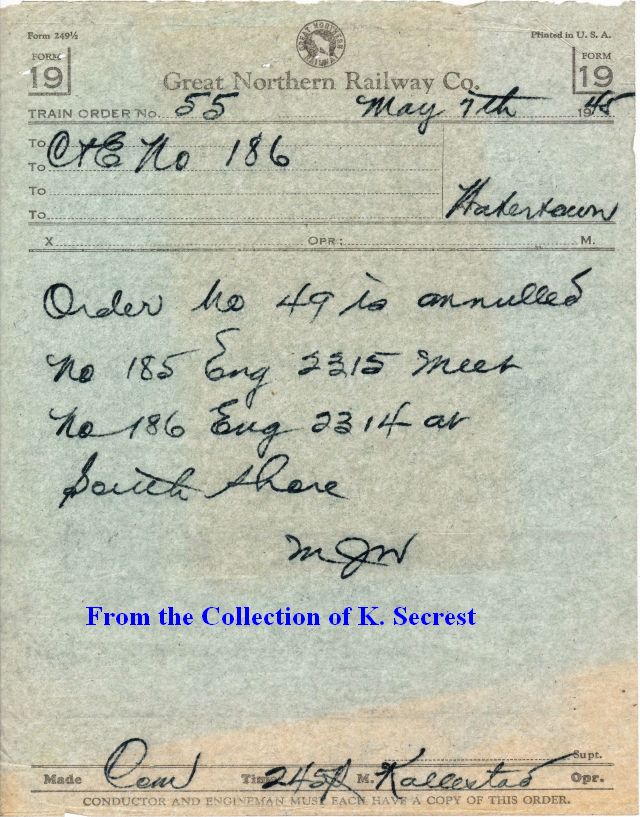 Form 249½
Printed in U. S. A.
GREAT NORTHERN RAILWAY
FORM 19
FORM 19
Great Northern Railway Co.
TRAIN ORDER No. 55 May 7th 1945
To C&E No 186
To
To
To Watertown
X OPR: M.
Order No 49 is annulled
No 185 Eng 2315 Meet
No 186 Eng 2314 at
South Shore
MJW
From the Collection of K. Secrest
Supt.
Made Com Time 245P M. Kallestad Opr.
CONDUCTOR AND ENGINEMAN MUST EACH HAVE A COPY OF THIS ORDER.